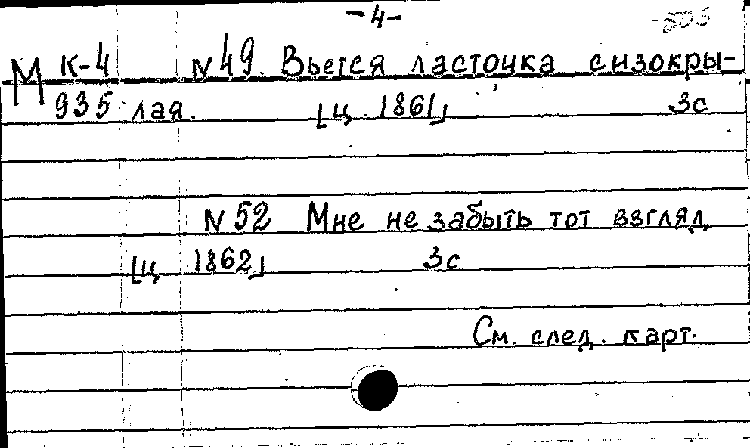 -4-
М К-4 N 49. Вьется ласточка сизокры-
935 лая. [Ц. 1861] 3с
N 52 Мне не забыть тот взгляд
[Ц 1862] 3с
См. след. карт.